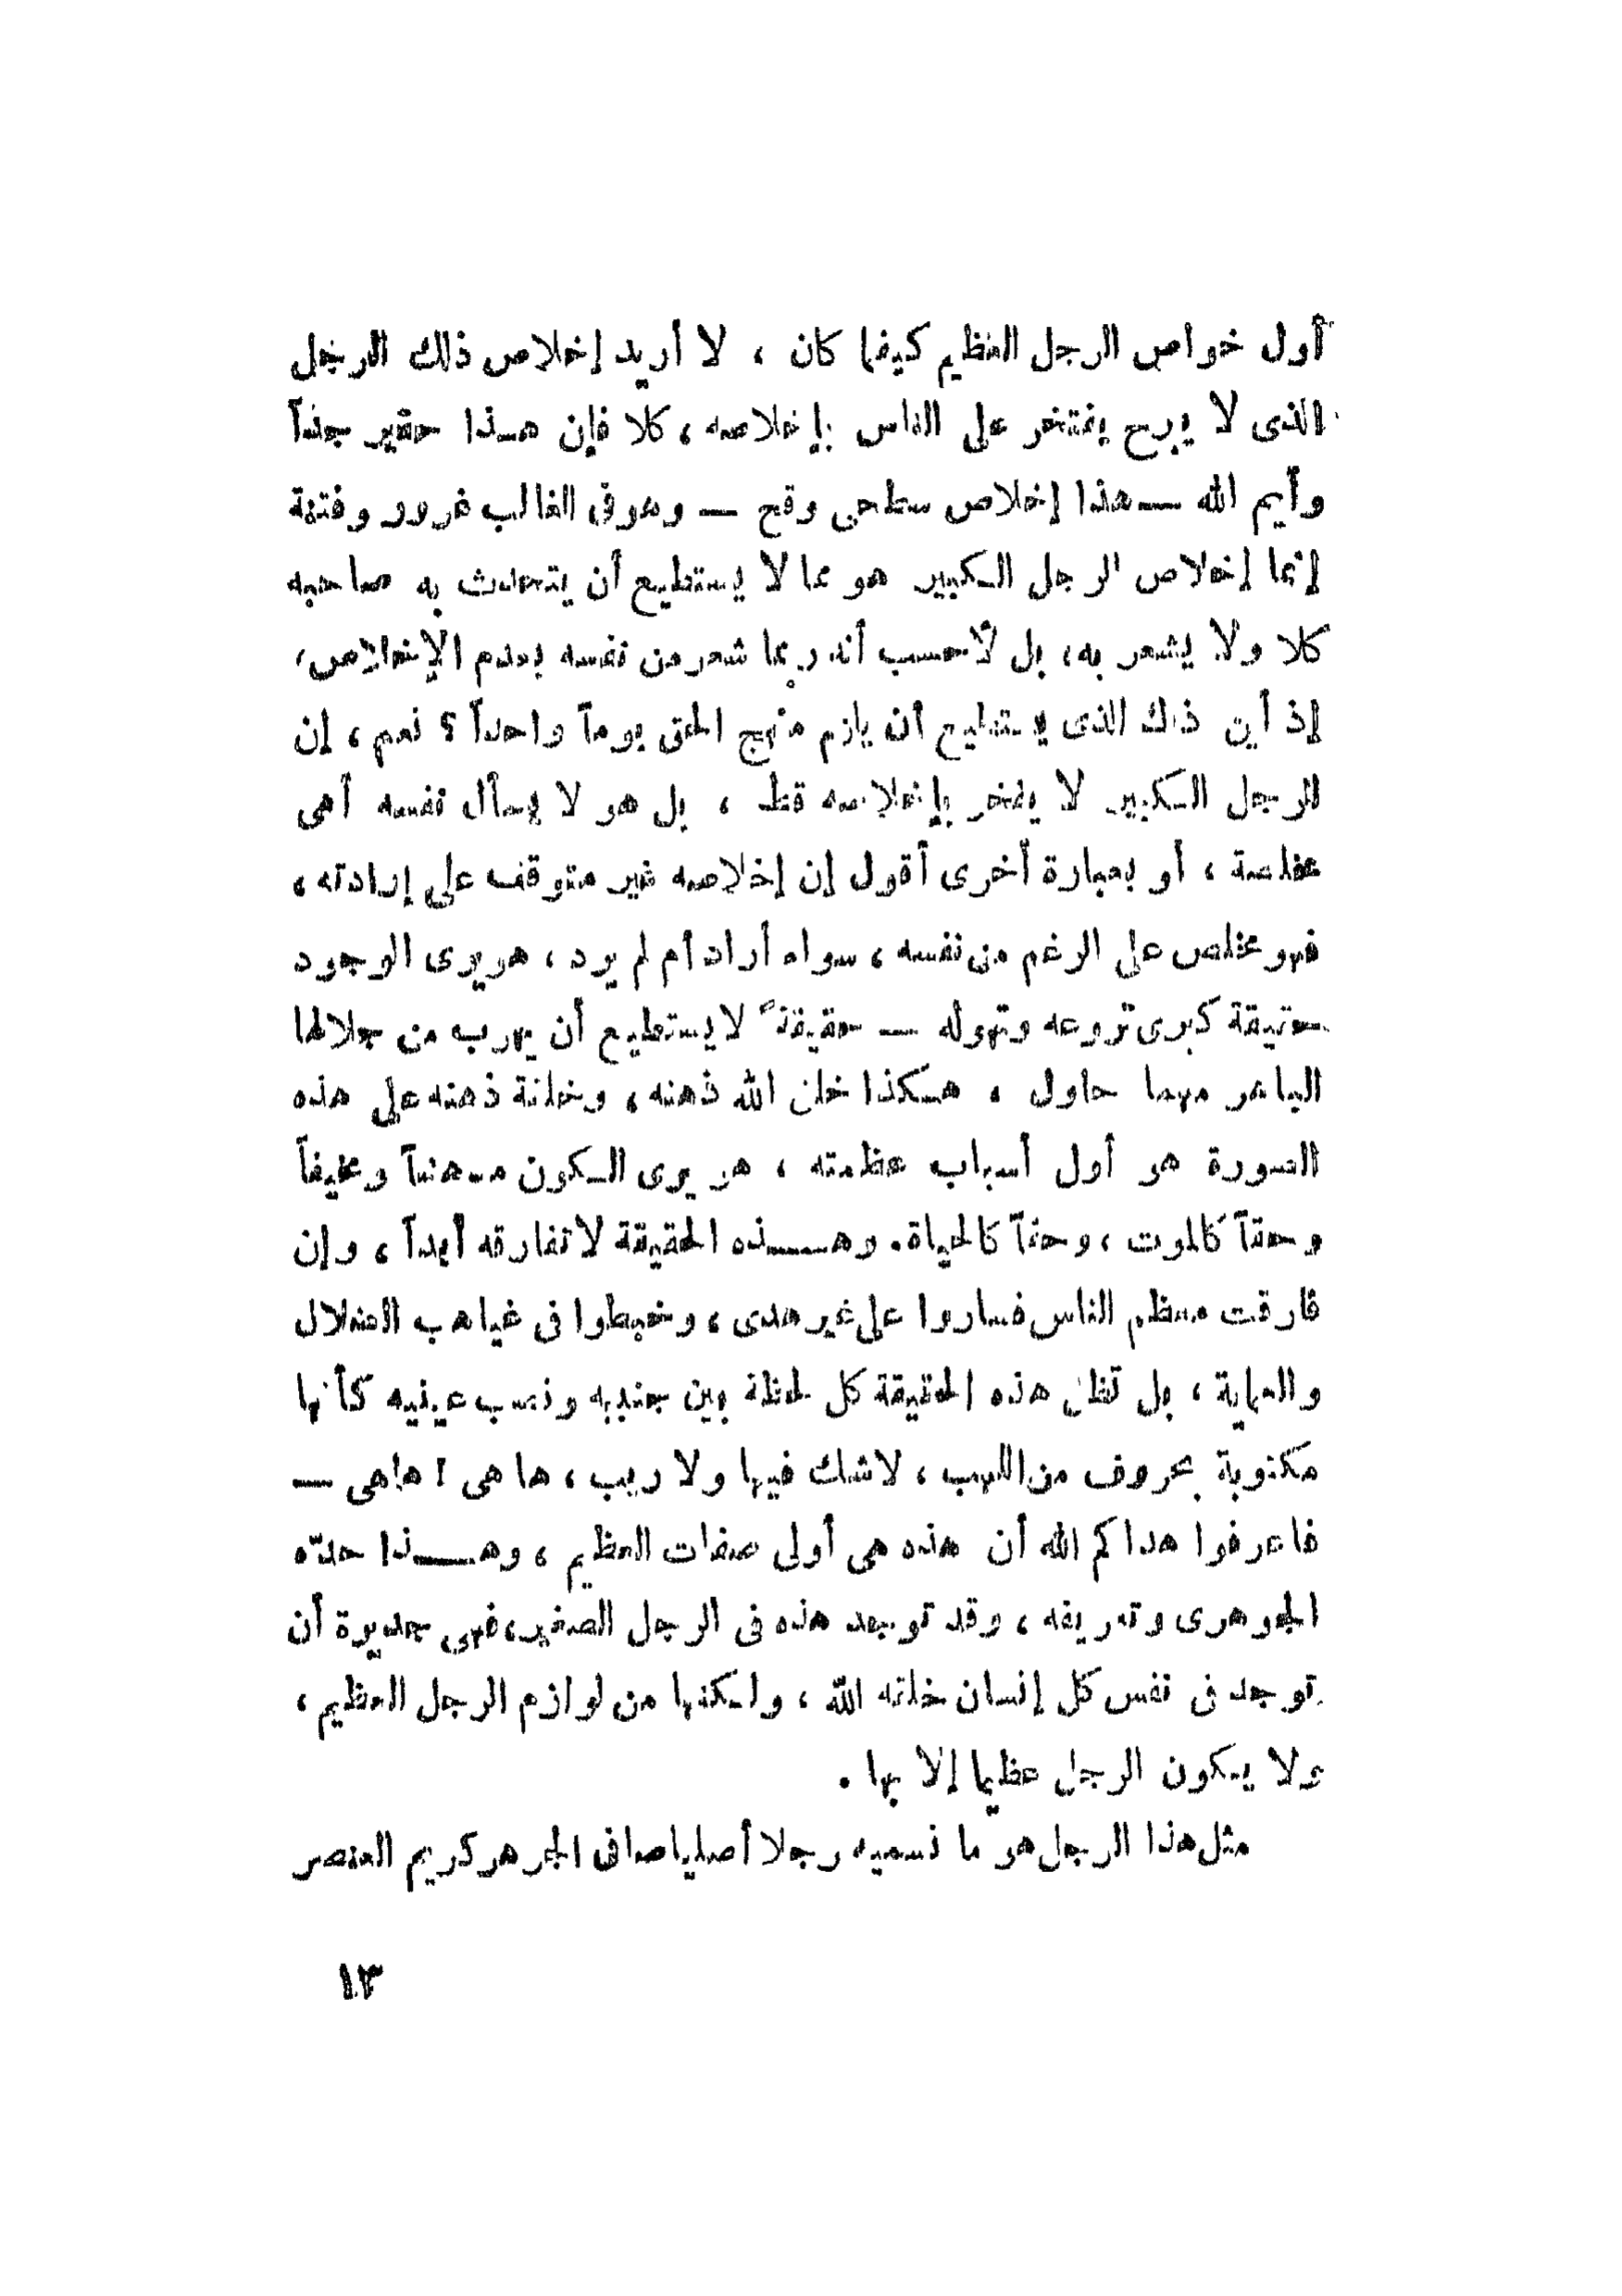 أول خواص الرجل العظيم كيفما كان ، لا أريد إخلاص ذلك الرجل
الذى لا يبرح يفتخر على الناس بإخلاصه ، كلا فإن هذا حقير جداً
وأيم الله — هذا إخلاص سطحى وقح — وهو فى الغالب غرور وفتنة
إنما إخلاص الرجل الكبير هو مما لا يستطيع أن يتحدث به صاحبه
كلا ولا يشعر به ، بل لأحسب أنه ربما شعر من نفسه بعدم الإخلاص ،
إذ أين ذلك الذى يستطيع أن يلزم منهج الحق يوماً واحداً ؟ نعم ، إن
الرجل الكبير لا يفخر بإخلاصه قط ، بل هو لا يسأل نفسه أهى
مخلصة ، أو بعبارة أخرى أقول إن إخلاصه غير متوقف على إرادته ،
فهو مخلص على الرغم من نفسه ، سواء أراد أم لم يرد ، هو يرى الوجود
حقيقة كبرى تروعه وتهوله — حقيقة لا يستطيع أن يهرب من جلالها
الباهر مهما حاول ، هكذا خلق الله ذهنه ، وخلقة ذهنه على هذه
الصورة هو أول أسباب عظمته ، هو يرى الكون مدهشاً ومخيفاً
وحقاً كالموت ، وحقاً كالحياة . وهذه الحقيقة لا تفارقه أبداً ، وإن
فارقت معظم الناس فساروا على غير هدى ، وخبطوا فى غياهب الضلال
والعماية ، بل تظل هذه الحقيقة كل لحظة بين جنبيه ونصب عينيه كأنها
مكتوبة بحروف من اللهب ، لا شك فيها ولا ريب ، ها هى ! ها هى —
فاعرفوا هداكم الله أن هذه هى أولى صفات العظيم ، وهذا حدّه
الجوهرى وتعريفه ، وقد توجد هذه فى الرجل الصغير ، فهى جديرة أن
توجد فى نفس كل إنسان خلقه الله ، ولكنها من لوازم الرجل العظيم ،
ولا يكون الرجل عظيما إلا بها .
مثل هذا الرجل هو ما نسميه رجلا أصليا صافى الجوهر كريم العنصر
١٣